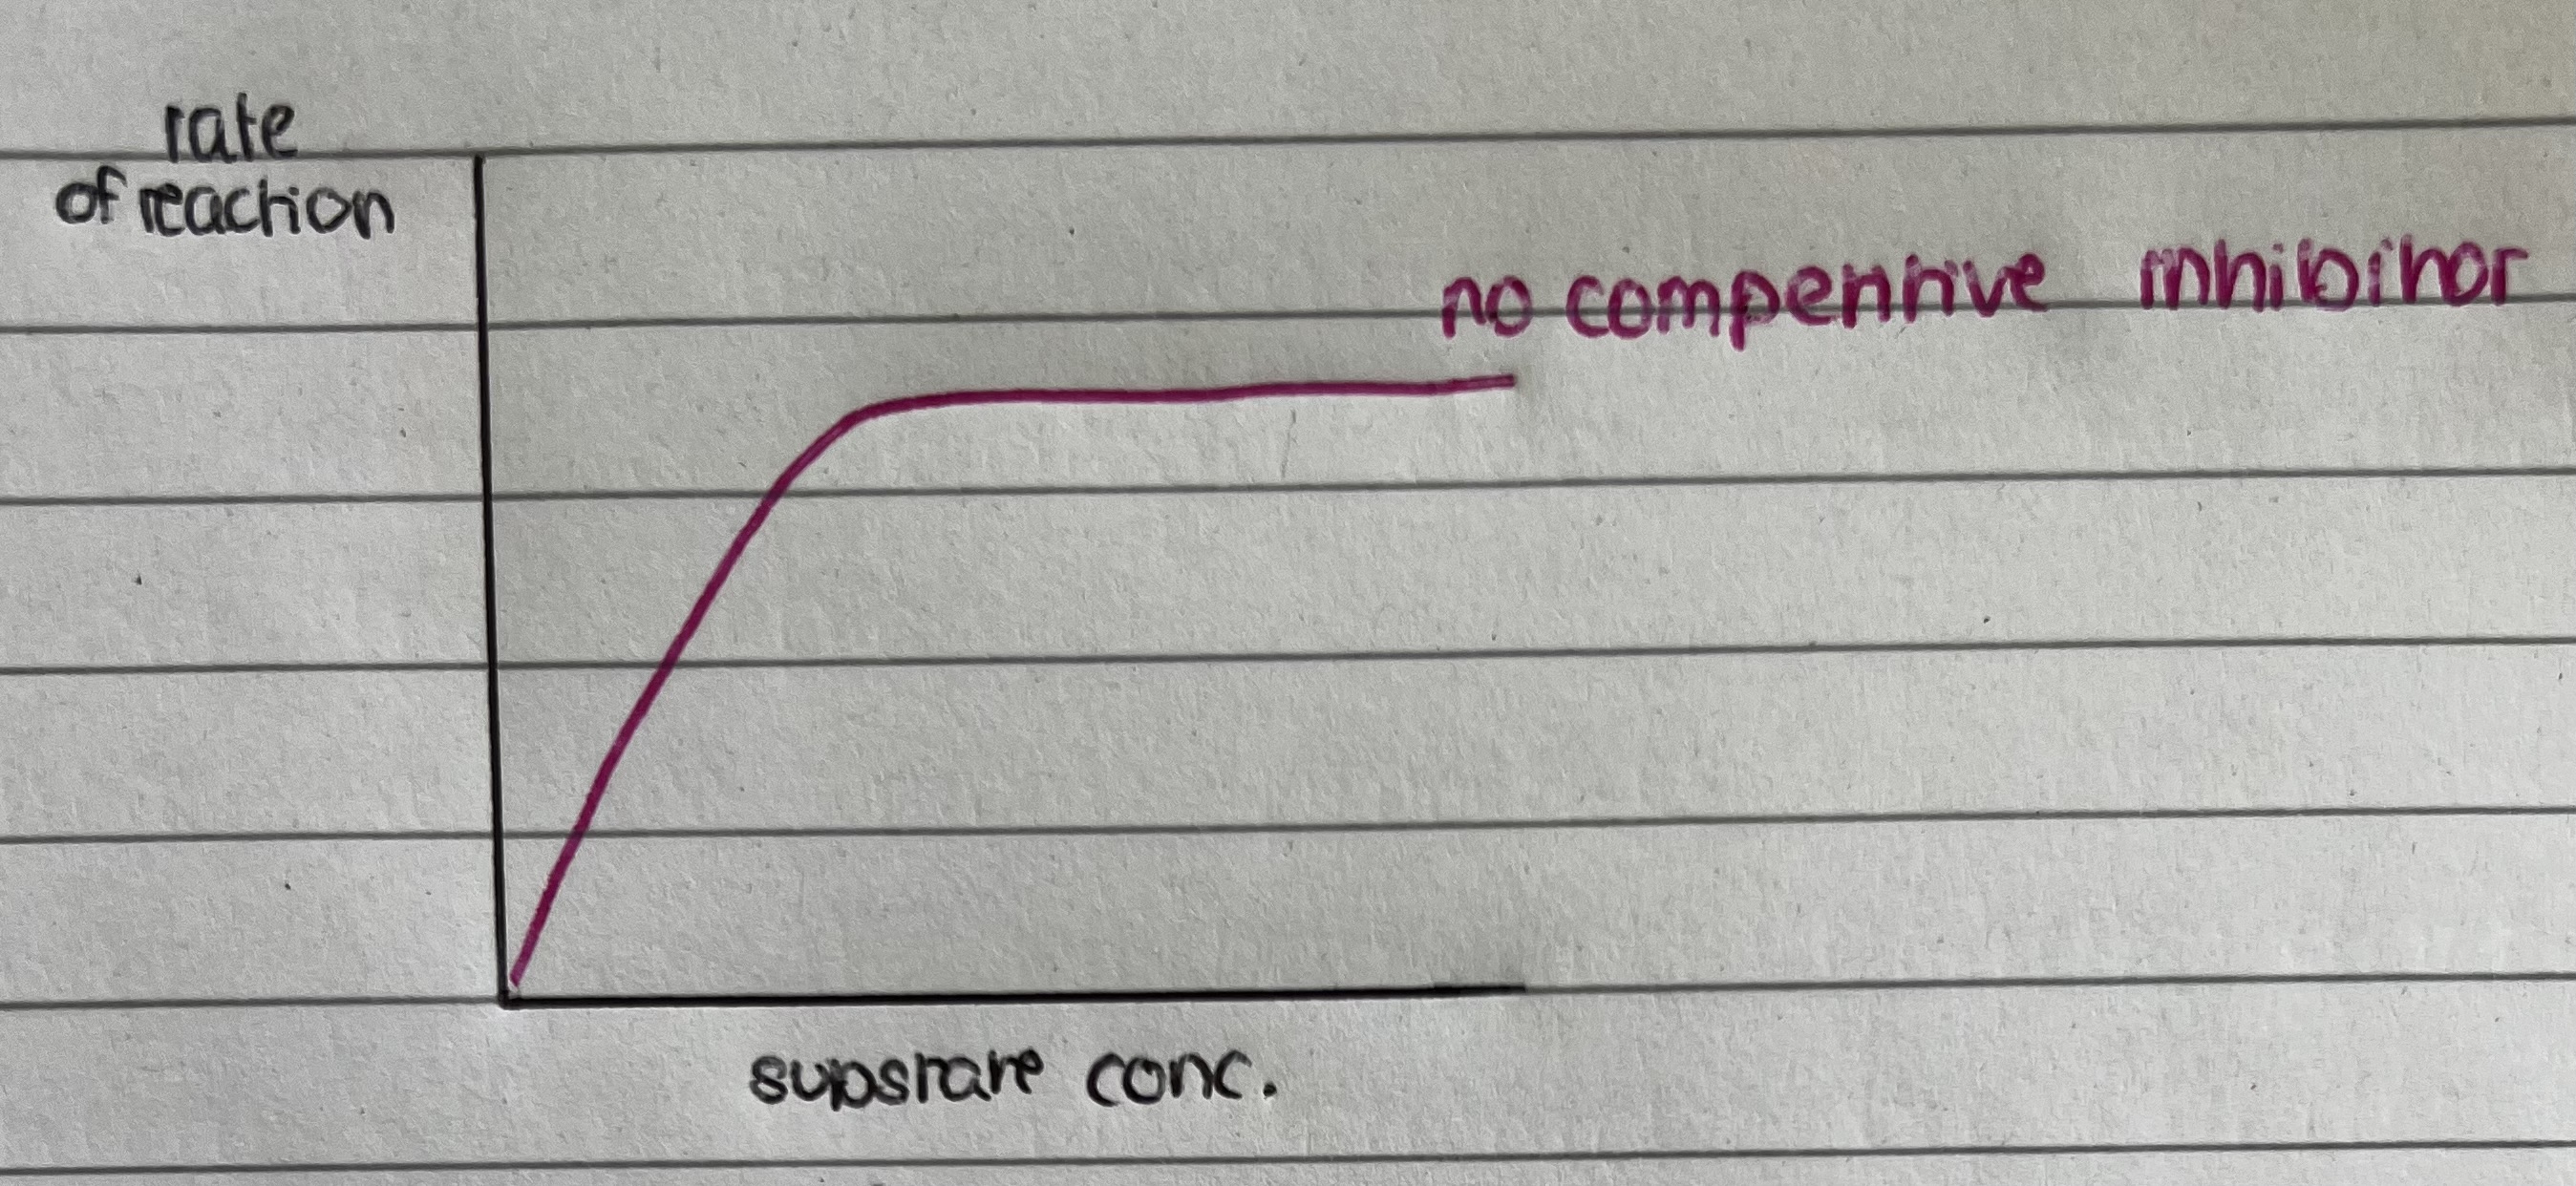 rate
of reaction
no competitive inhibitor
substrate conc.